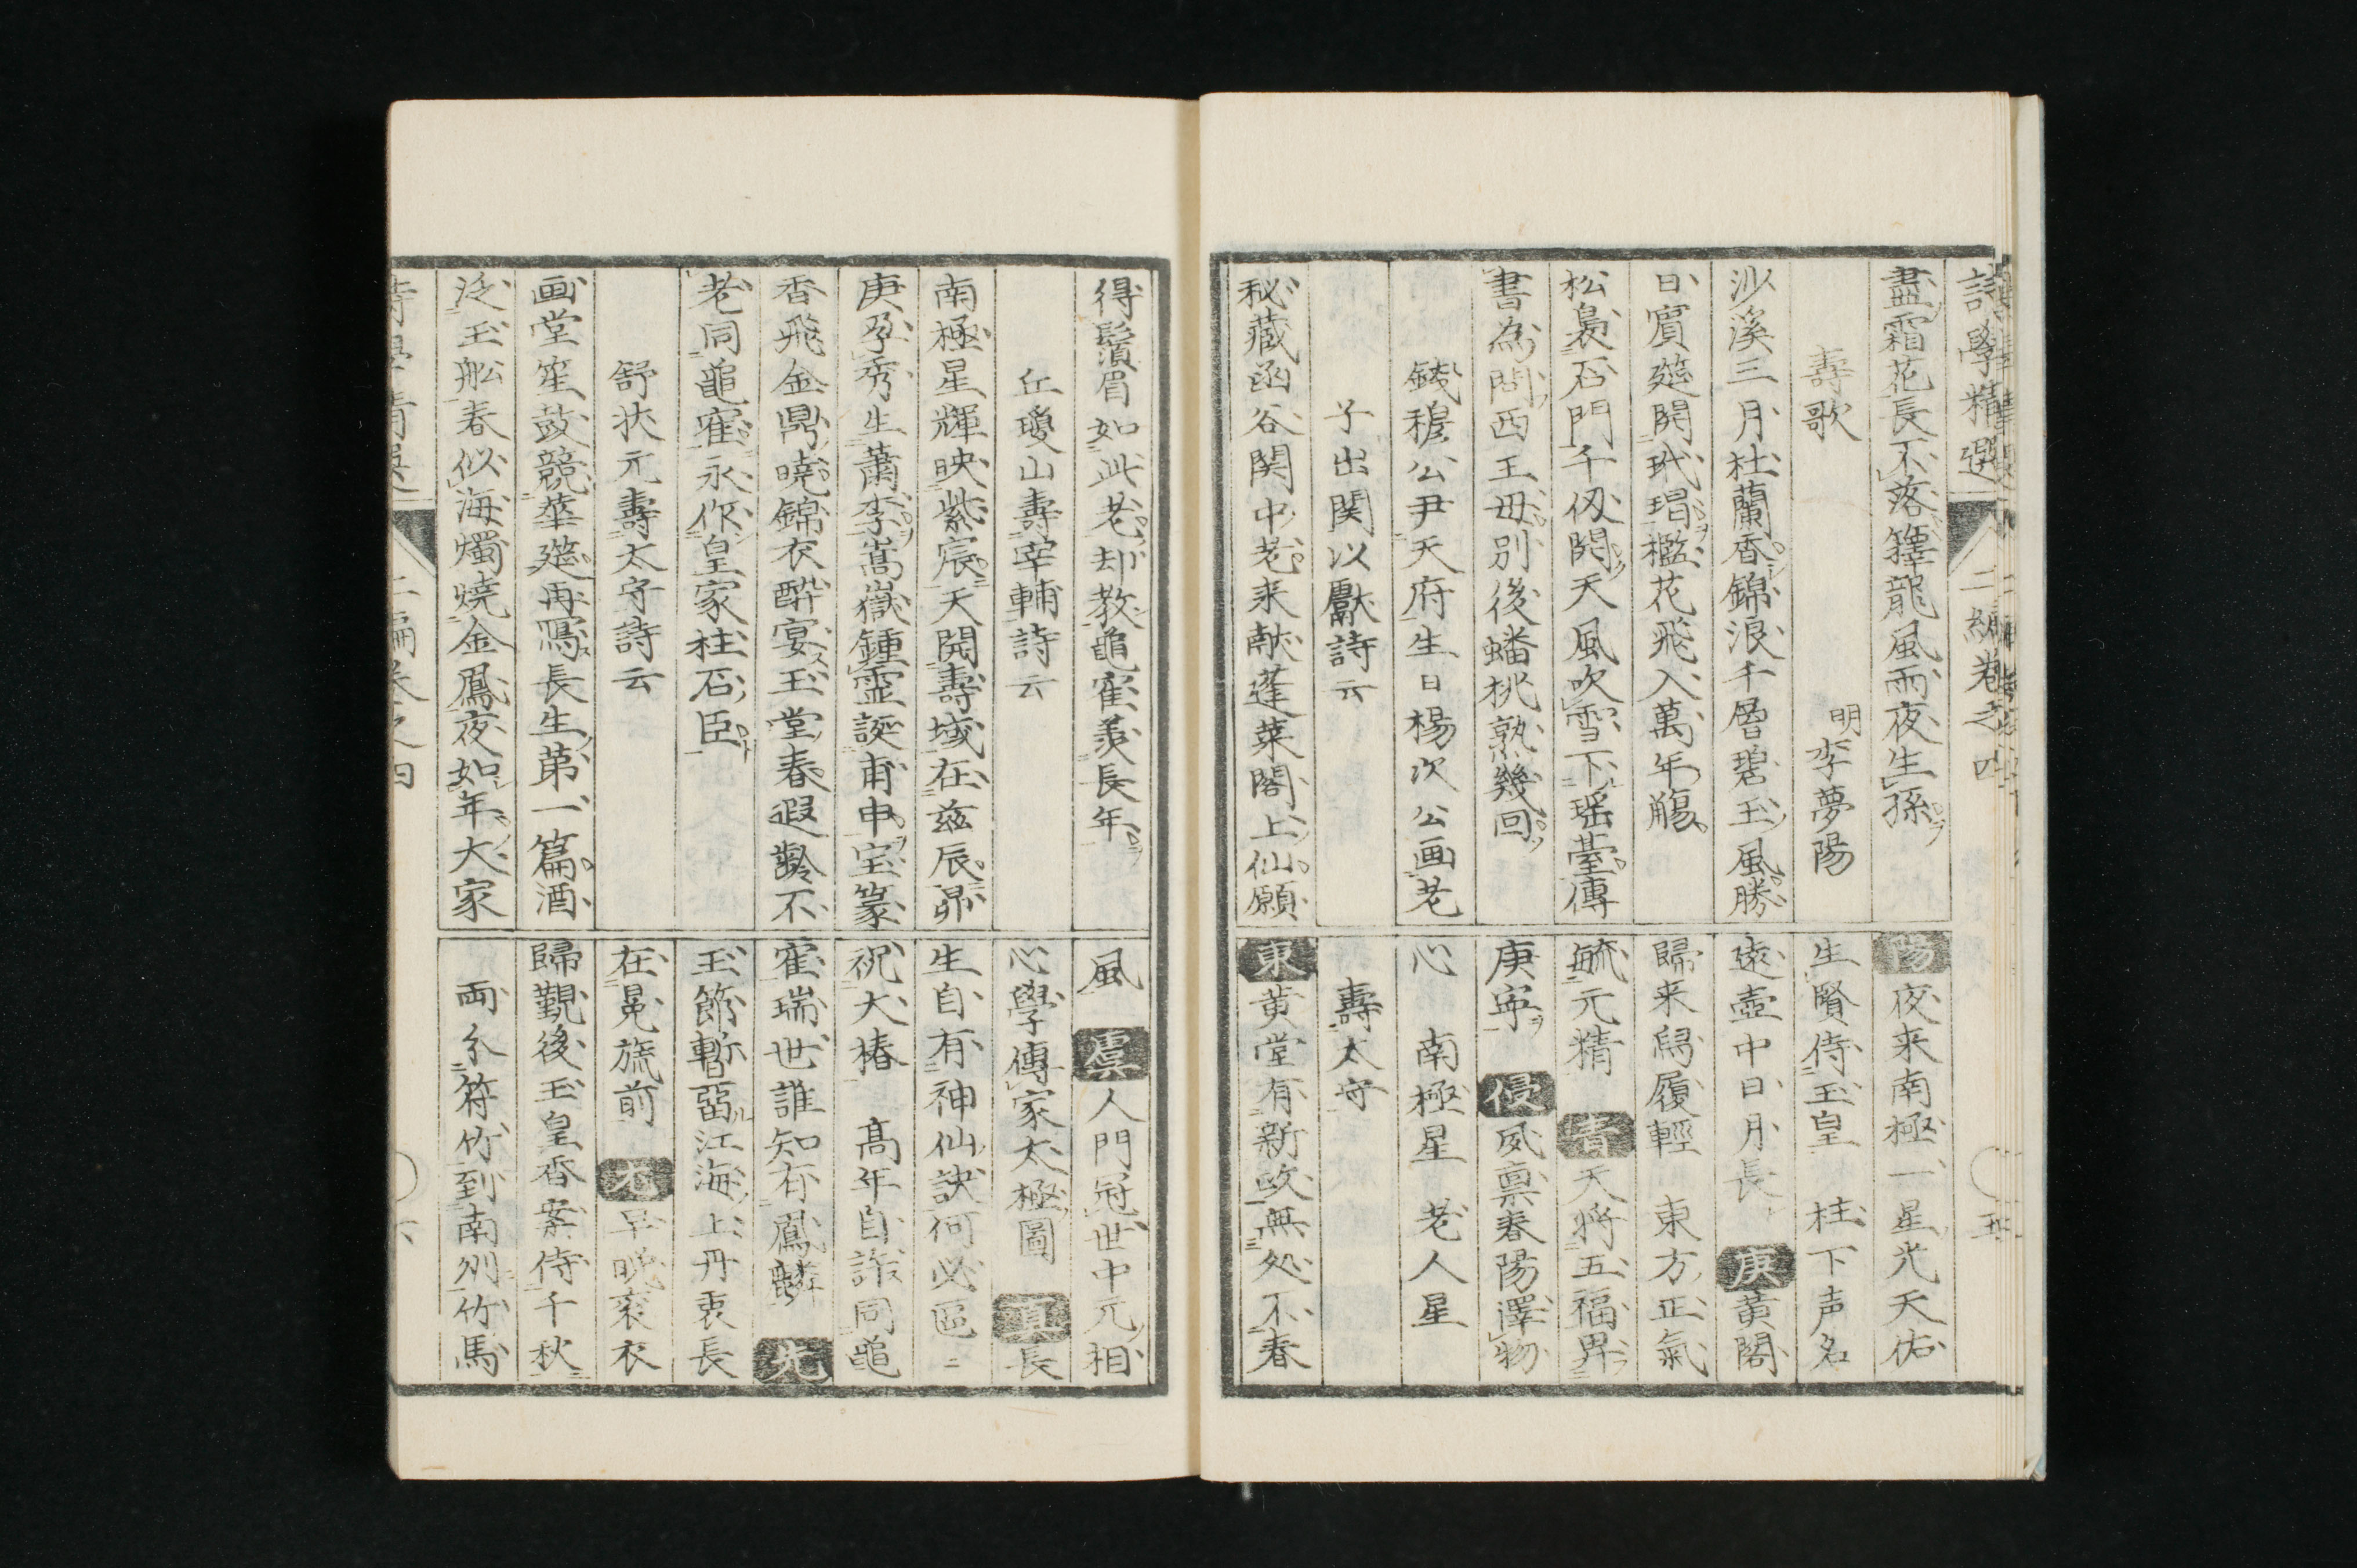 詩學精選 二編卷之四 五
盡霜花長不落籜龍風雨夜生孫
壽歌 明 李夢陽
沙溪三月杜蘭香錦浪千層碧玉風勝
日賓筵開玳瑁檻花飛入萬年觴
松裊石門千仭開天風吹雪下瑶臺傳
書為問西王毋別後蟠桃熟幾回
錢穆公尹天府生日楊次公画老
子出関以獻詩云
秘藏函谷関中老来献蓬莱閣上仙願
陽 夜来南極一星光天佑
生賢侍玉皇 柱下声名
遠壺中日月長 庚 黄閣
歸来舄履輕 東方正氣
毓元精 青 天将五福畀
庚寧 侵 威禀春陽澤物
心 南極星 老人星
壽太守
東 黄堂有新政無処不春
得鬚眉如此老却教龜寉羨長年
丘瓊山壽宰輔詩云
南極星輝映紫宸天開壽域在兹辰昴
庚孕秀生蕭李嵩嶽鍾霊誕甫申宝篆
香飛金鼎曉錦衣酔宴玉堂春遐齢不
老同龜寉永作皇家柱石臣
舒状元壽太守詩云
画堂笙鼓競華筵再寫長生第一篇酒
泛玉舩春似海燭焼金鳳夜如年大家
風 虞 人門冠世中元相
心學傳家太極圖 真 長
生自有神仙訣何必區二
祝大椿 髙年自許同龜
寉瑞世誰知有鳳麟 先
玉節暫留江海上丹衷長
在冕旒前 蒸 早晩衮衣
歸覲後玉皇香案侍千秋
両分符竹到南州竹馬
詩學精選 二編卷之四 六